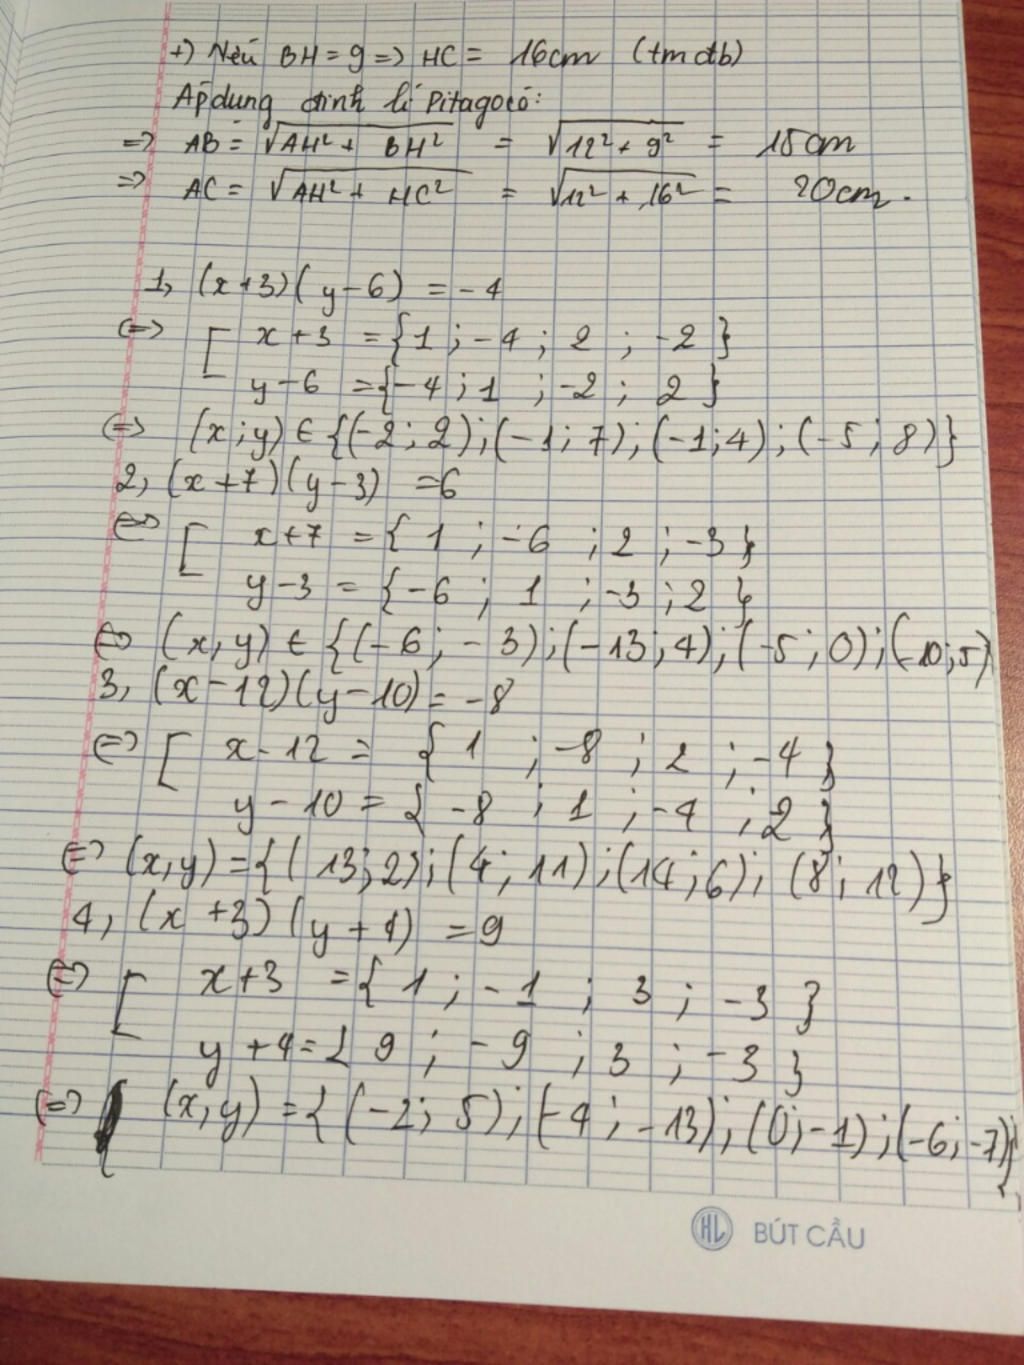 +) Nếu BH = 9 => HC = 16cm (tmđb)
Áp dụng định lí Pitago có:
=> AB = √AH² + BH² = √12² + 9² = 15cm
=> AC = √AH² + HC² = √12² + 16² = 20cm.
1, (x+3)(y-6) = -4
<=> [ x+3 = {1 ; -4 ; 2 ; -2}
y-6 = {-4 ; 1 ; -2 ; 2}
<=> (x;y) ∈ {(-2;2);(-1;7);(-1;4);(-5;8)}
2, (x+7)(y-3) = 6
<=> [ x+7 = {1 ; -6 ; 2 ; -3}
y-3 = {-6 ; 1 ; -3 ; 2}
<=> (x,y) ∈ {(-6;-3);(-13;4);(-5;0);(-10;5)
3, (x-12)(y-10) = -8
<=> [ x-12 = {1 ; -8 ; 2 ; -4}
y-10 = {-8 ; 1 ; -4 ; 2}
<=> (x,y) = {(13;2);(4;11);(14;6);(8;12)}
4, (x+3)(y+4) = 9
<=> [ x+3 = {1 ; -1 ; 3 ; -3}
y+4 = {9 ; -9 ; 3 ; -3}
<=> (x,y) = {(-2;5);(-4;-13);(0;-1);(-6;-7)}
HL BÚT CẦU